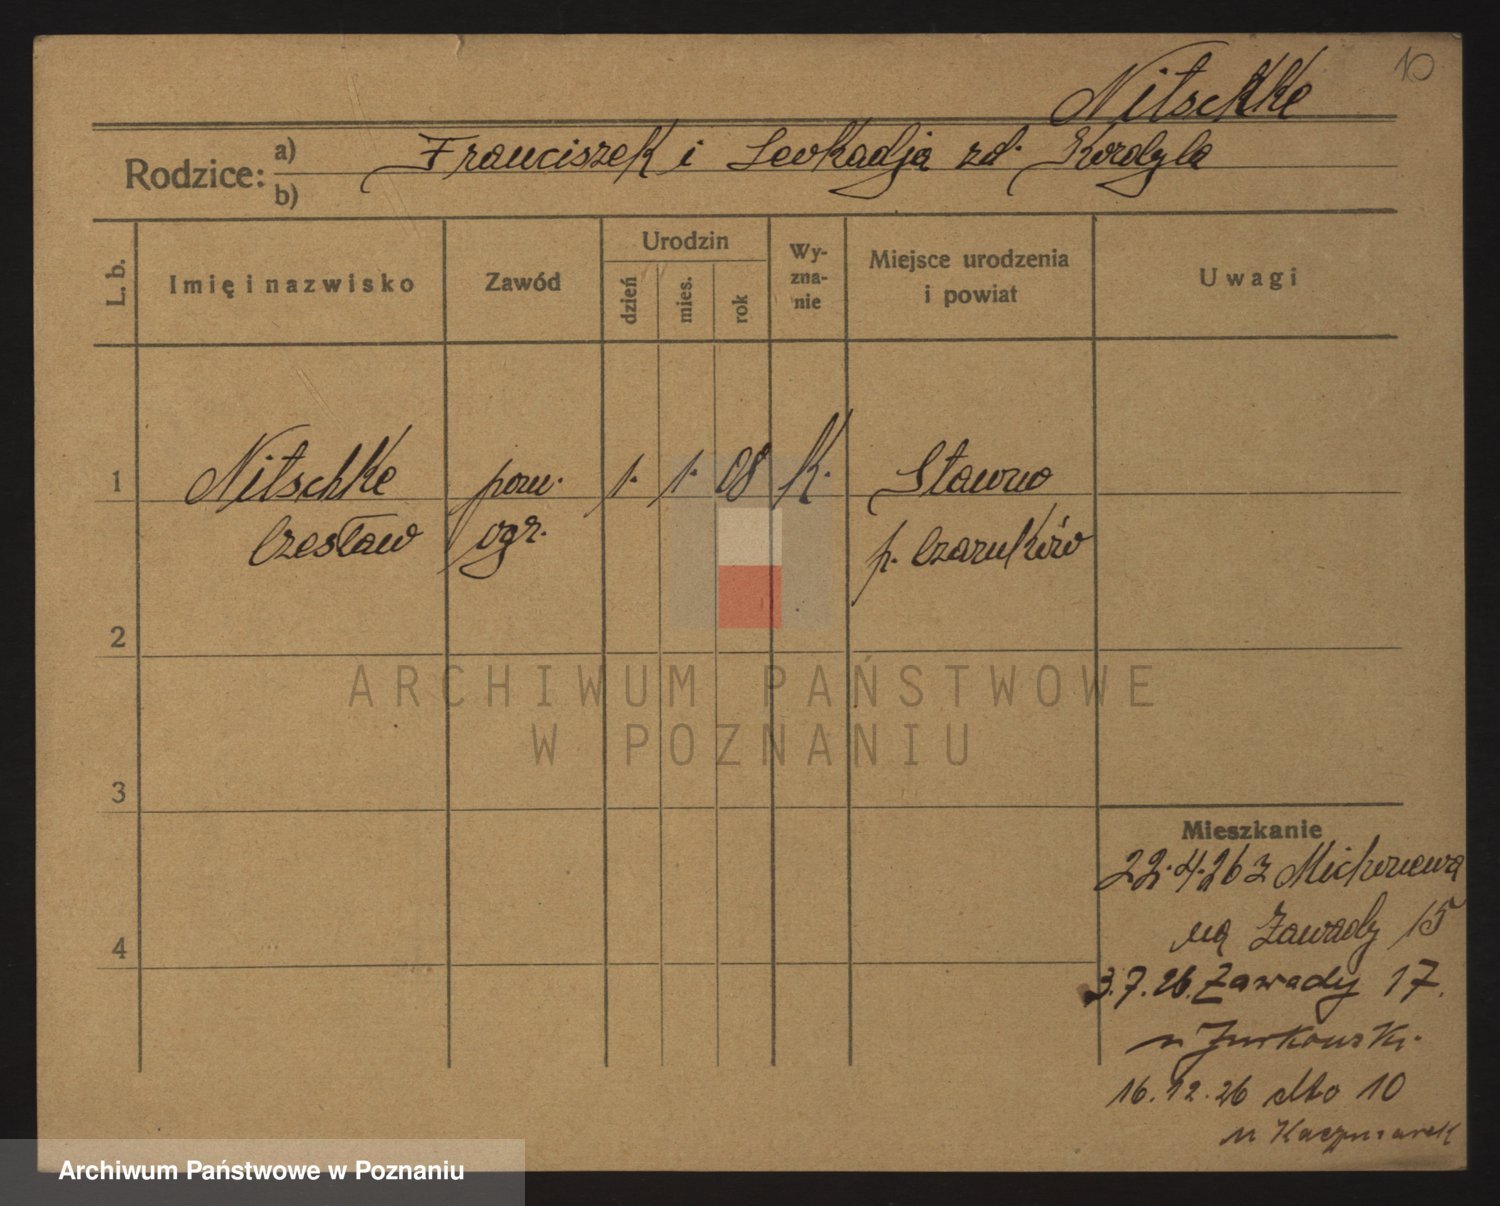 10
Nitschke
Rodzice: a) Franciszek i Leokadja zd. Kordyla
b)
L. b.
Imię i nazwisko
Zawód
Urodzin
dzień
mies.
rok
Wy-
zna-
nie
Miejsce urodzenia
i powiat
Uwagi
1
Nitschke pom. 1. 1. 08 k. Sławno
Czesław ogr. p. Czarnków
2
3
4
Mieszkanie
22.4.26 z
na Zawady 15
3.7.26. Zawady 17.
u Jurkowski.
16.12.26 dtto 10
u Kaczmarek
ARCHIWUM PAŃSTWOWE
W POZNANIU
Archiwum Państwowe w Poznaniu